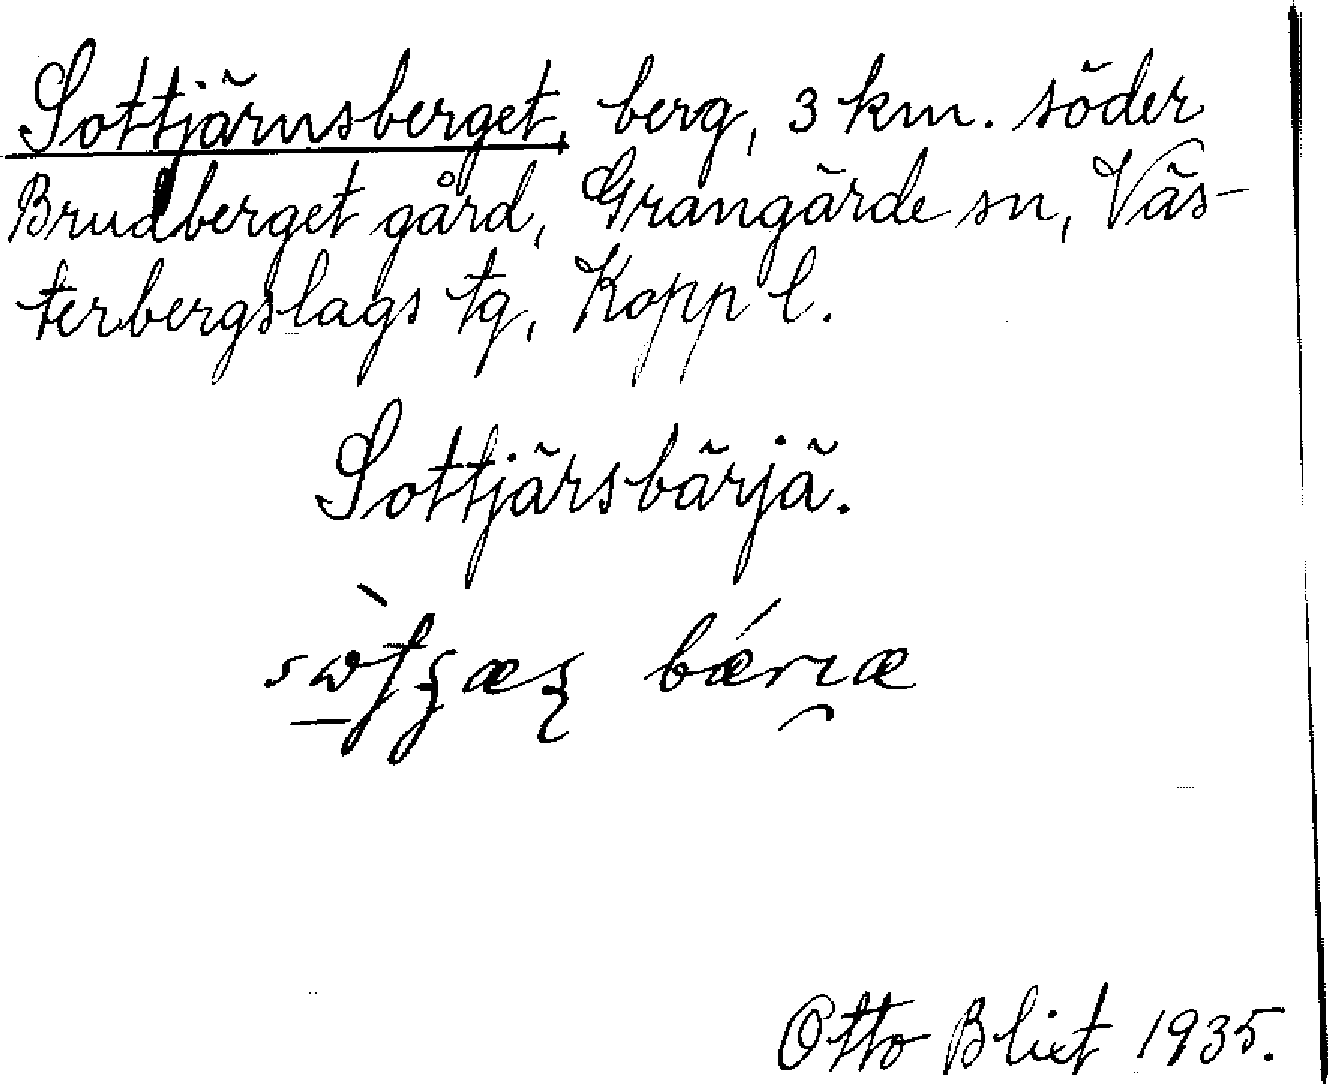 Sottjärnsberget, berg, 3 km. söder
Brudberget gård, Grangärde sn, Väs-
terbergslags tg, Kopp l.
Sottjärsbärjä.
Otto Blixt 1935.